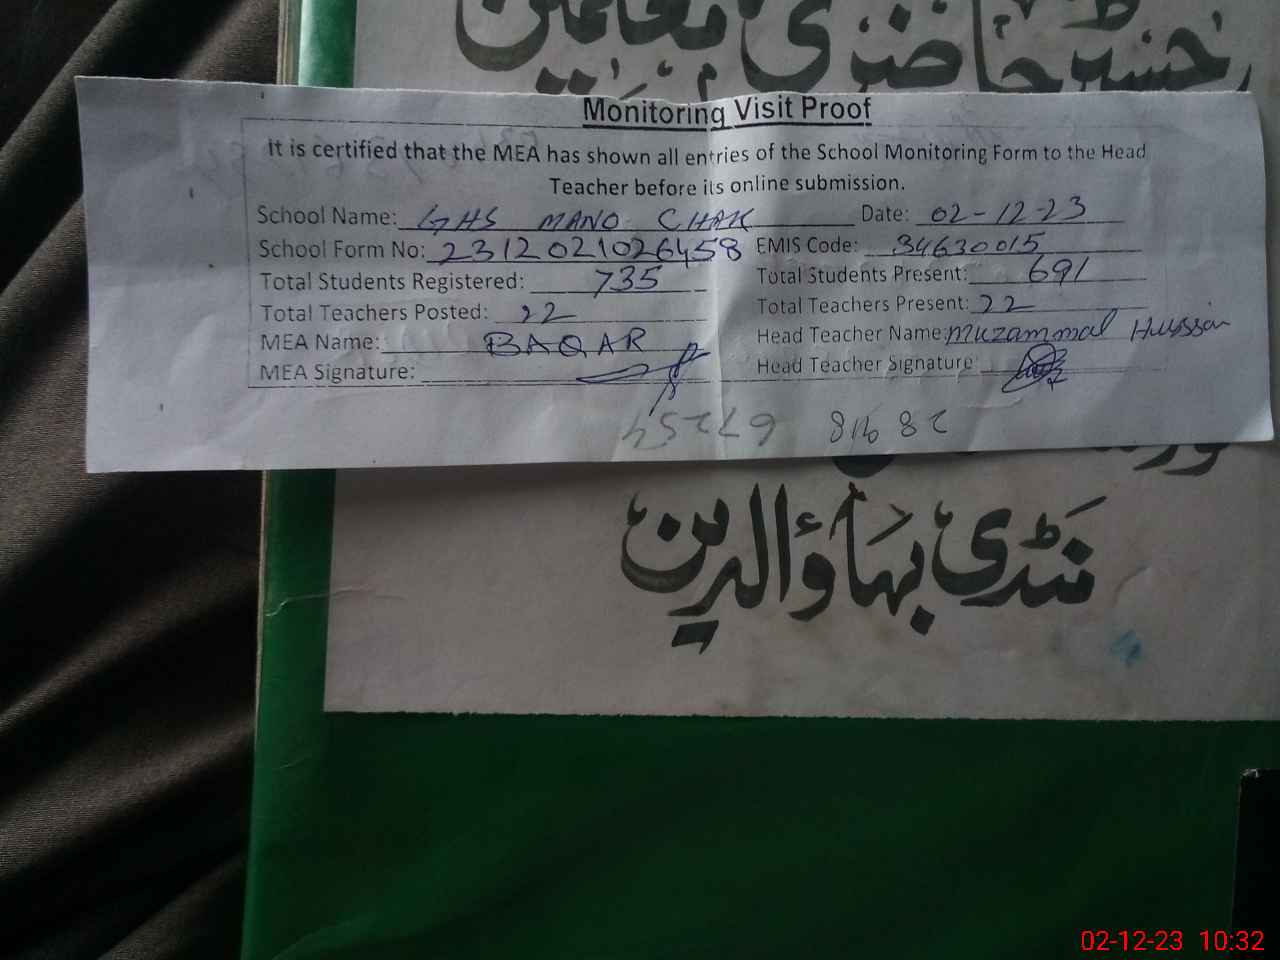 رجسٹر حاضری معلمین
Monitoring Visit Proof
It is certified that the MEA has shown all entries of the School Monitoring Form to the Head
Teacher before its online submission.
School Name: GHS MANO CHAK Date: 02-12-23
School Form No: 2312021026458 EMIS Code: 34630015
Total Students Registered: 735 Total Students Present: 691
Total Teachers Posted: 22 Total Teachers Present: 22
MEA Name: BAQAR Head Teacher Name: Muzammal Hussain
MEA Signature: Head Teacher Signature:
منڈی بہاؤالدین
02-12-23 10:32